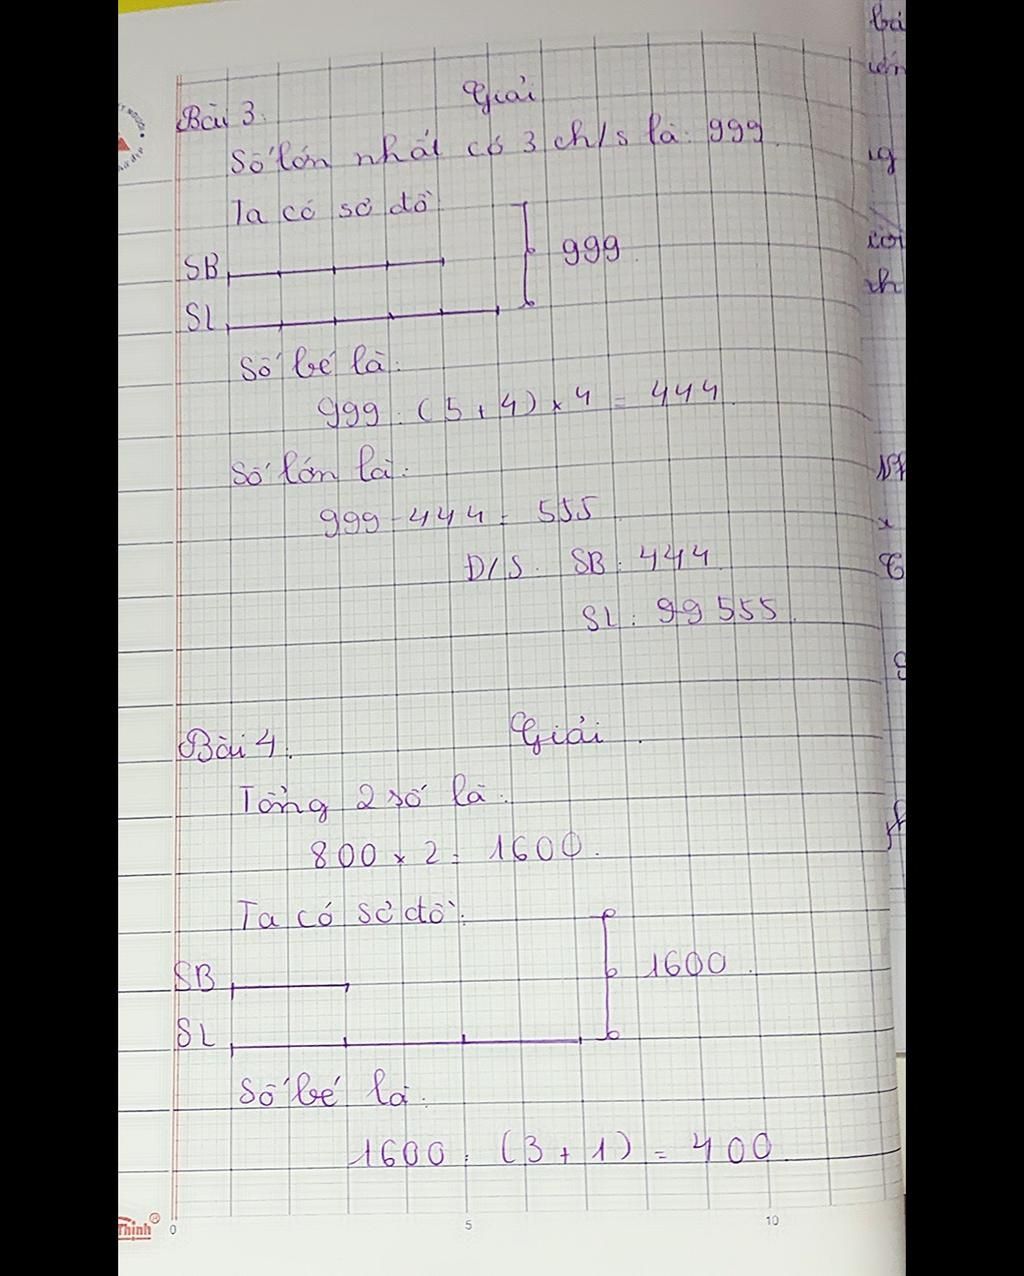 Giải
Bài 3.
Số lớn nhất có 3 ch/s là: 999
Ta có sơ đồ
SB
999.
SL
Số bé là:
999 : (5 + 4) × 4 = 444.
Số lớn là:
999 - 444 = 555
Đ/S: SB: 444
SL: 99 555.
Bài 4.
Giải.
Tổng 2 số là:
800 × 2 = 1600.
Ta có sơ đồ:
SB
1600.
SL
Số bé là:
1600 : (3 + 1) = 400
Thịnh®
0 5 10